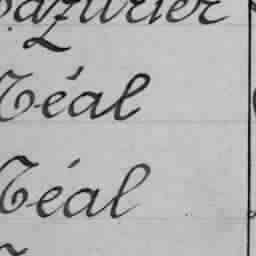 Bazurier
Téal
Téal